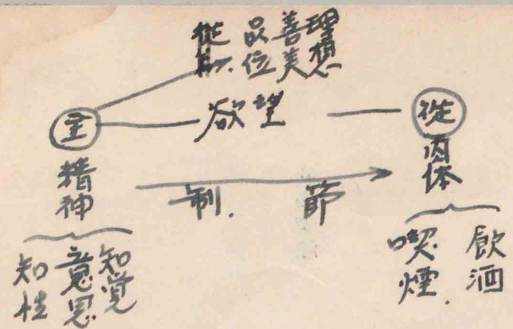 理想
善美
品位
主
欲望
従
精神
制.節
肉体
知覚
意思
知性
飲酒.
喫煙